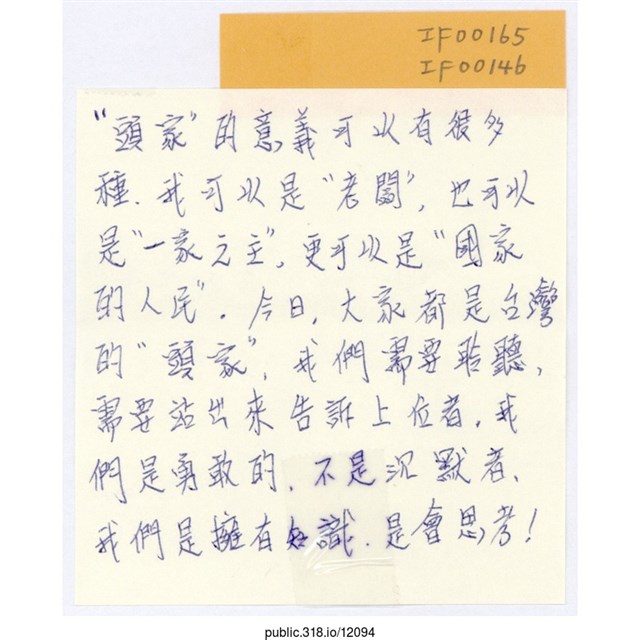 IF00165
IF00146
"頭家"的意義可以有很多
種.我可以是"老闆",也可以
是"一家之主",更可以是"國家
的人民".今日,大家都是台灣
的"頭家",我們需要聆聽,
需要站出來告訴上位者,我
們是勇敢的,不是沉默者,
我們是擁有知識.是會思考!
public.318.io/12094